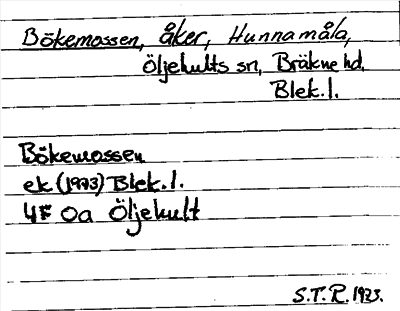 Bökemossen, åker, Hunnamåla,
Öljehults sn, Bräkne hd.
Blek.l.
Bökemossen
ek (1973) Blek.l.
4F 0a Öljehult
S.T.R. 1973.